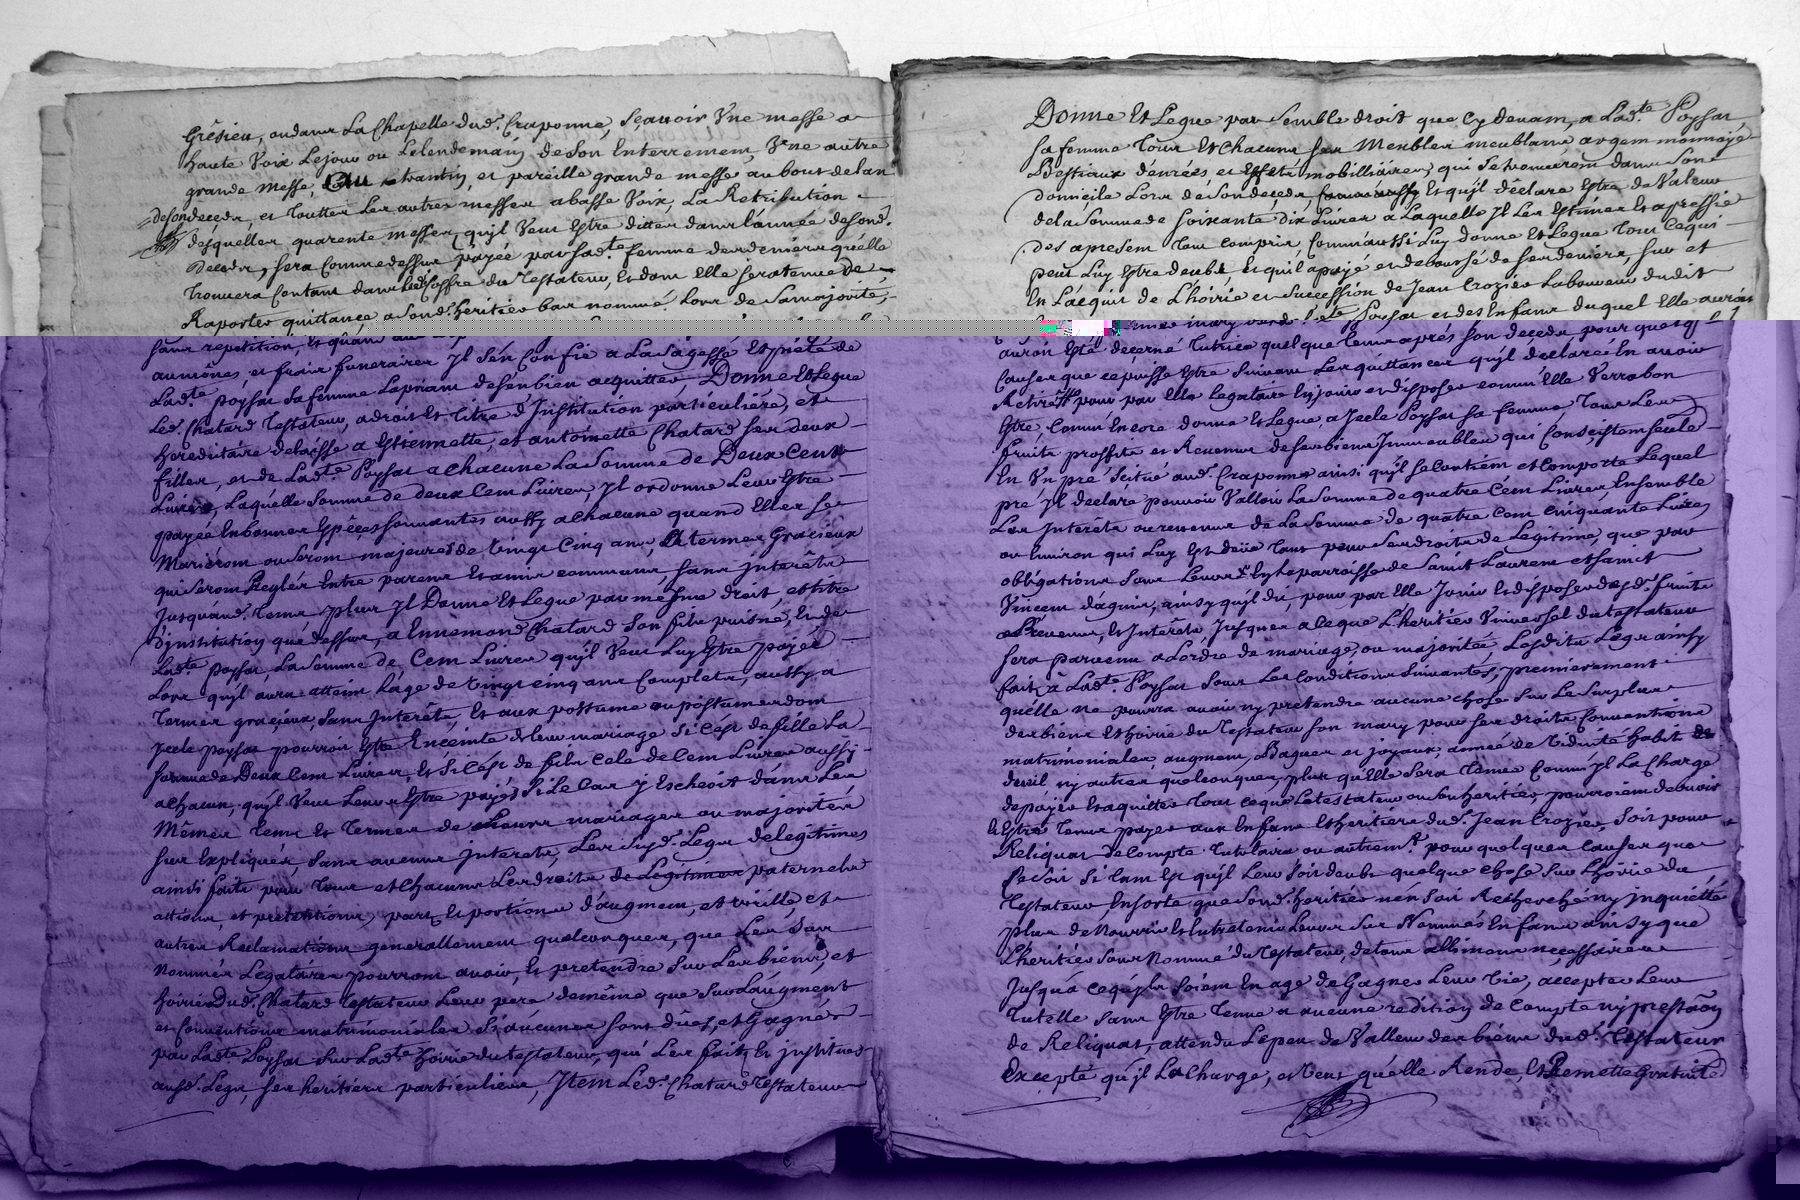 Grésieu, ou dans La Chapelle dud. Craponne, Sçavoir Une messe a
haute Voix Lejour ou Lelendemain de Son Enterrement, Une autre
grande messe, et pareille grande messe au bout delan
desondecedz, et Touttes Les autres messes abasse Voix, La Retribution
desquelles, quarente messes qu'jl Veut Estre dittes dans lannée desond.
Decedz, Sera Comme dessus payée par Sad.te femme des deniers quélle
Trouvera Contant dans Les Coffres du Testateur, Et dont Elle Sera tenue De
Raporter quittance a Sond. heritier bas nommé Lors de Samajorité,
Sans repetition, Et quant aux
aumônes, et frais funeraires Jl Sén Confie a La Sagesse Et piété de
Lad.te poysat Sa femme Lapriant desén bien acquitter, Donne Et Legue
Led. Chatard Testateur, adroit Et titre d'Institution particuliére, et
hereditaire delaisse a Estiennette, et antoinette Chatard Ses deux
filles, et de Lad.te Poysat a Chacune La Somme de Deux Cents
Livres, Laquélle Somme de deux Cent Livres, Jl ordonne Leur Estre
payée En bonnes Espéces Sonnantes aussy a Chacune quand Elles Se
Marieront ou Seront majeures de Vingt Cinq ans, Et termes Gracieux
qui Seront Reglés Entre parens Et amis communs, Sans jntérêts
Jusquaud. Tems, plus Jl Donne Et Legue par mesme droit, et titre
d'institution que dessus, a Ennemond Chatard Son fils puisné, Et de
Lad.te poysat, La Somme de Cent Livres qu'jl Veut Luy Estre payée
Lors qu'jl aura atteint Lâge de Vingt cinq ans Complets, aussy a
Termes gracieux, Sans Jnterêts, Et aux postume ou postumes dont
Jcele poysat pourroit Estre Enceinte de Leur mariage Si Cést de fille La
Somme de Deux Cent Livres Et Si Cést de fils Cele de Cent Livres aussy
a Chacun, qu'jl Veut Leur Estre payés Si Le Cas y Escheoit dans Les
Mémes Tems Et Termes de Leurs mariages ou majorités
Sur Expliqués, Sans aucuns jnterêts, Les Susd. Legs de legitimes
ainsi faits pour Tous et Chacuns Les droits de Legitimes paternels
actions, et pretentions, parts, Et portions d'augment, et virille, et
autres Reclamations generallement quelconques, que Les Sus
Nommés Legataires pourront avoir, Et pretendre Sur Les biens, et
hoirie Dud. Chatard Testateur Leur pere demême que Sur Láugment
et Conventions matrimoniales Si aucunes Sont dûes, et Gagnés
par Lad.te Poysat Sur Lad.te hoirie du testateur, qui Les fait, Et jnstitue
ausd. Legs, Ses heritiers particuliers, Jtem Led. Chatard Testateur
Donne Et Legue par Semble droit que Cy devant, a Lad.te Poysat,
Sa femme Tous Et Chacuns Ses Meubles meublans argent monnoyé
Bestiaux dénrées, et Effets mobilliaires, qui Se trouveront dans Son
Domicile Lors de Sondecedz, Et qu'jl déclare Estre de Valeur
de la Somme de Soixante Dix Livres a Laquelle Jl Les Estimés Et apressie
Des apresent Tout compris, Comm'aussi Luy donne Et Legue Tout Ce qui
peut Luy Estre deub, Et qu'jl a payé et deboursé de Ses deniers, Sur et
En Lácquit de L'hoirie et Succession de Jean Crozier Laboureur dudit
auroit Esté decerné Tutrice quelque Tems aprés Son decedz, pour quelq.
Causes que ce puisse Estre Suivant Les quittances qu'jl declare En avoir
Retirés pour par Elle Legataire En jouir et disposer comm'Elle Verra bon
Estre, Comm'Encore donne Et Legue, a Jcele Poysat Sa femme Tous Les
fruits proffits et Revenus de Ses biens Jmmeubles qui Consistent Seulem.
En Un pré Scitué aud. Craponne ainsi qu'jl Se Contient et Comporte Lequel
pré Jl declare pouvoir Valloir La Somme de quatre Cent Livres Ensemble
Les Jnterêts ou revenus de La Somme de quatre Cent Cinquante Livres
ou Environ qui Luy Est deüe Tant pour Ses droits de Legitime, que par
obligations Sous Leurs En La parroisse de Saint Laurent et Saint
Vincent d'agnin, ainsy qu'jl dit, pour par Elle Jouir Et disposer desd. fruits
et Revenus, Et Jntérêts, Jusques a Ceque L'heritier Universel du testateur
Sera parvenu a L'ordre de mariage, ou majoritée, Lesdits Legs ainsy
faits, à Lad.te Poysat Sous Les Conditions Suivantes, premierement
quélle ne pourra avoir ny pretendre aucune chose Sur Le Surplus
des biens Et hoirie du Testateur Son mary pour Ses droits Conventions
matrimoniales, augment, Bagues et joyaux, année de Viduité habit de
dueil ny autres quelconques, plus qu'Elle Sera Tenue Comm'Jl La Charge
de payer Et aquitter Tout ceque Letestateur ou Son heritier, pourroient debvoir
Et Estre Tenus payer aux Enfans Et heritiers dud. Jean Crozier, Soit pour
Reliquat de Compte Tutelaire ou autrem.t pour quelques Causes que
Ce Soit Si tant Est qu'jl Leur Soit deub quelque chose Sur L'hoirie du
Testateur En Sorte que Sond. heritier nén Soit Recherché ny jnquiétté
plus de Nourrir Et Entretenir Leurs Sus Nommés Enfans ainsy que
L'heritier Sous Nommé du Testateur, de tous allimens necessaires
Jusquà cequ'jls Soient En age de Gagner Leur Vie, accepter Leur
Tutelle Sans Estre Tenue a aucune redition de Compte ny prestaôn
de Reliquat, attendu Le peu de Valleur des biens dud. Testateur
Excepté qu'jl La Charge, et Veut quélle Rende, Et Remette Gratuitem.